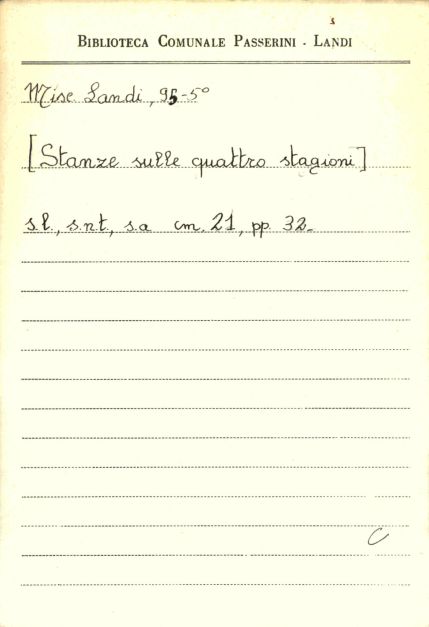 BIBLIOTECA COMUNALE PASSERINI - LANDI
Misc Landi, 95-5°
[Stanze sulle quattro stagioni]
s.l., s.n.t., s.a cm. 21, pp. 32.
C